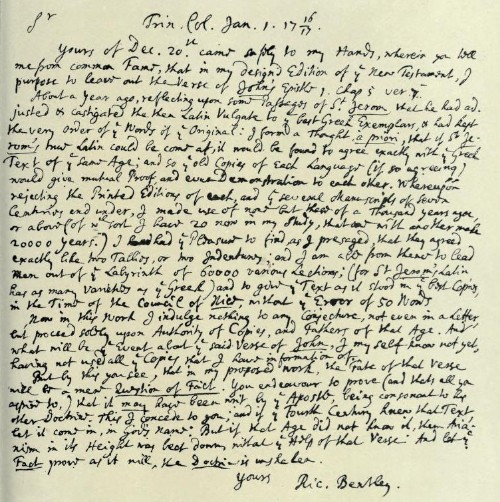 Sr Trin. Col. Jan. 1. 17 16/17.
Yours of Dec. 20th came safely to my Hands, wherein you tell
me from common Fame, that in my design'd Edition of ye New Testament, I
purpose to leave out the Verse of Johns Epistle 1. Chap 5 ver 7.
About a year ago, reflecting upon some Passages of St Jerom that he had ad-
justed & castigated the then Latin Vulgate to ye best Greek Exemplars, & had kept
the very order of ye Words of ye Original: I form'd a Thought, a priori, that if St Je-
rom's true Latin could be come at, it would be found to agree exactly with ye Greek
Text of ye same Age; and so ye old Copies of each Language (if so agreeing)
would give mutual Proof, and even Demonstration to each other. Whereupon
rejecting the Printed Editions of each, and ye several Manuscripts of Seven
Centuries and under, I made use of none but those of a Thousand years ago,
or above (of wch sort I have 20 now in my Study, that one with another make
20000 years.) I had ye Pleasure to find as I presaged, that they agreed
exactly like two Tallies, or two Indentures; and I am able from thence to lead
Men out of ye Labyrinth of 60000 various Lections; (for St Jeroms Latin
has as many Varieties as ye Greek) and to give ye Text as it stood in ye best Copies,
in the Time of the Council of Nice, without ye Error of 50 Words.
Now in this Work I indulge nothing to any Conjecture, not even in a Letter
but proceed solely upon Authority of Copies, and Fathers of that Age. And
what will be ye Event about ye said Verse of John, I my self know not yet
having not used all ye Copies that I have information of.
But by this you see, that in my proposed work, the Fate of that Verse
will be a mere Question of Fact. You endeavour to prove (and that's all you
aspire to,) that it may have been writ by ye Apostle, being consonant to his
other Doctrine. This I concede to you: and if ye Fourth Century knew that Text
let it come in, in God's name: But if that Age did not know it, then Aria-
nism in its Height was beat down, without ye Help of that Verse: And let ye
Fact prove as it will, the Doctrine is unshaken.
Yours
Ric. Bentley.